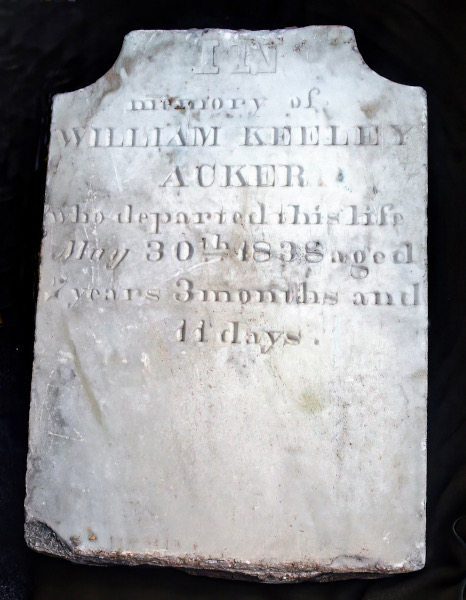 IN
memory of
WILLIAM KEELEY
ACKER
who departed this life
May 30th 1838 aged
7 years 3 months and
11 days.